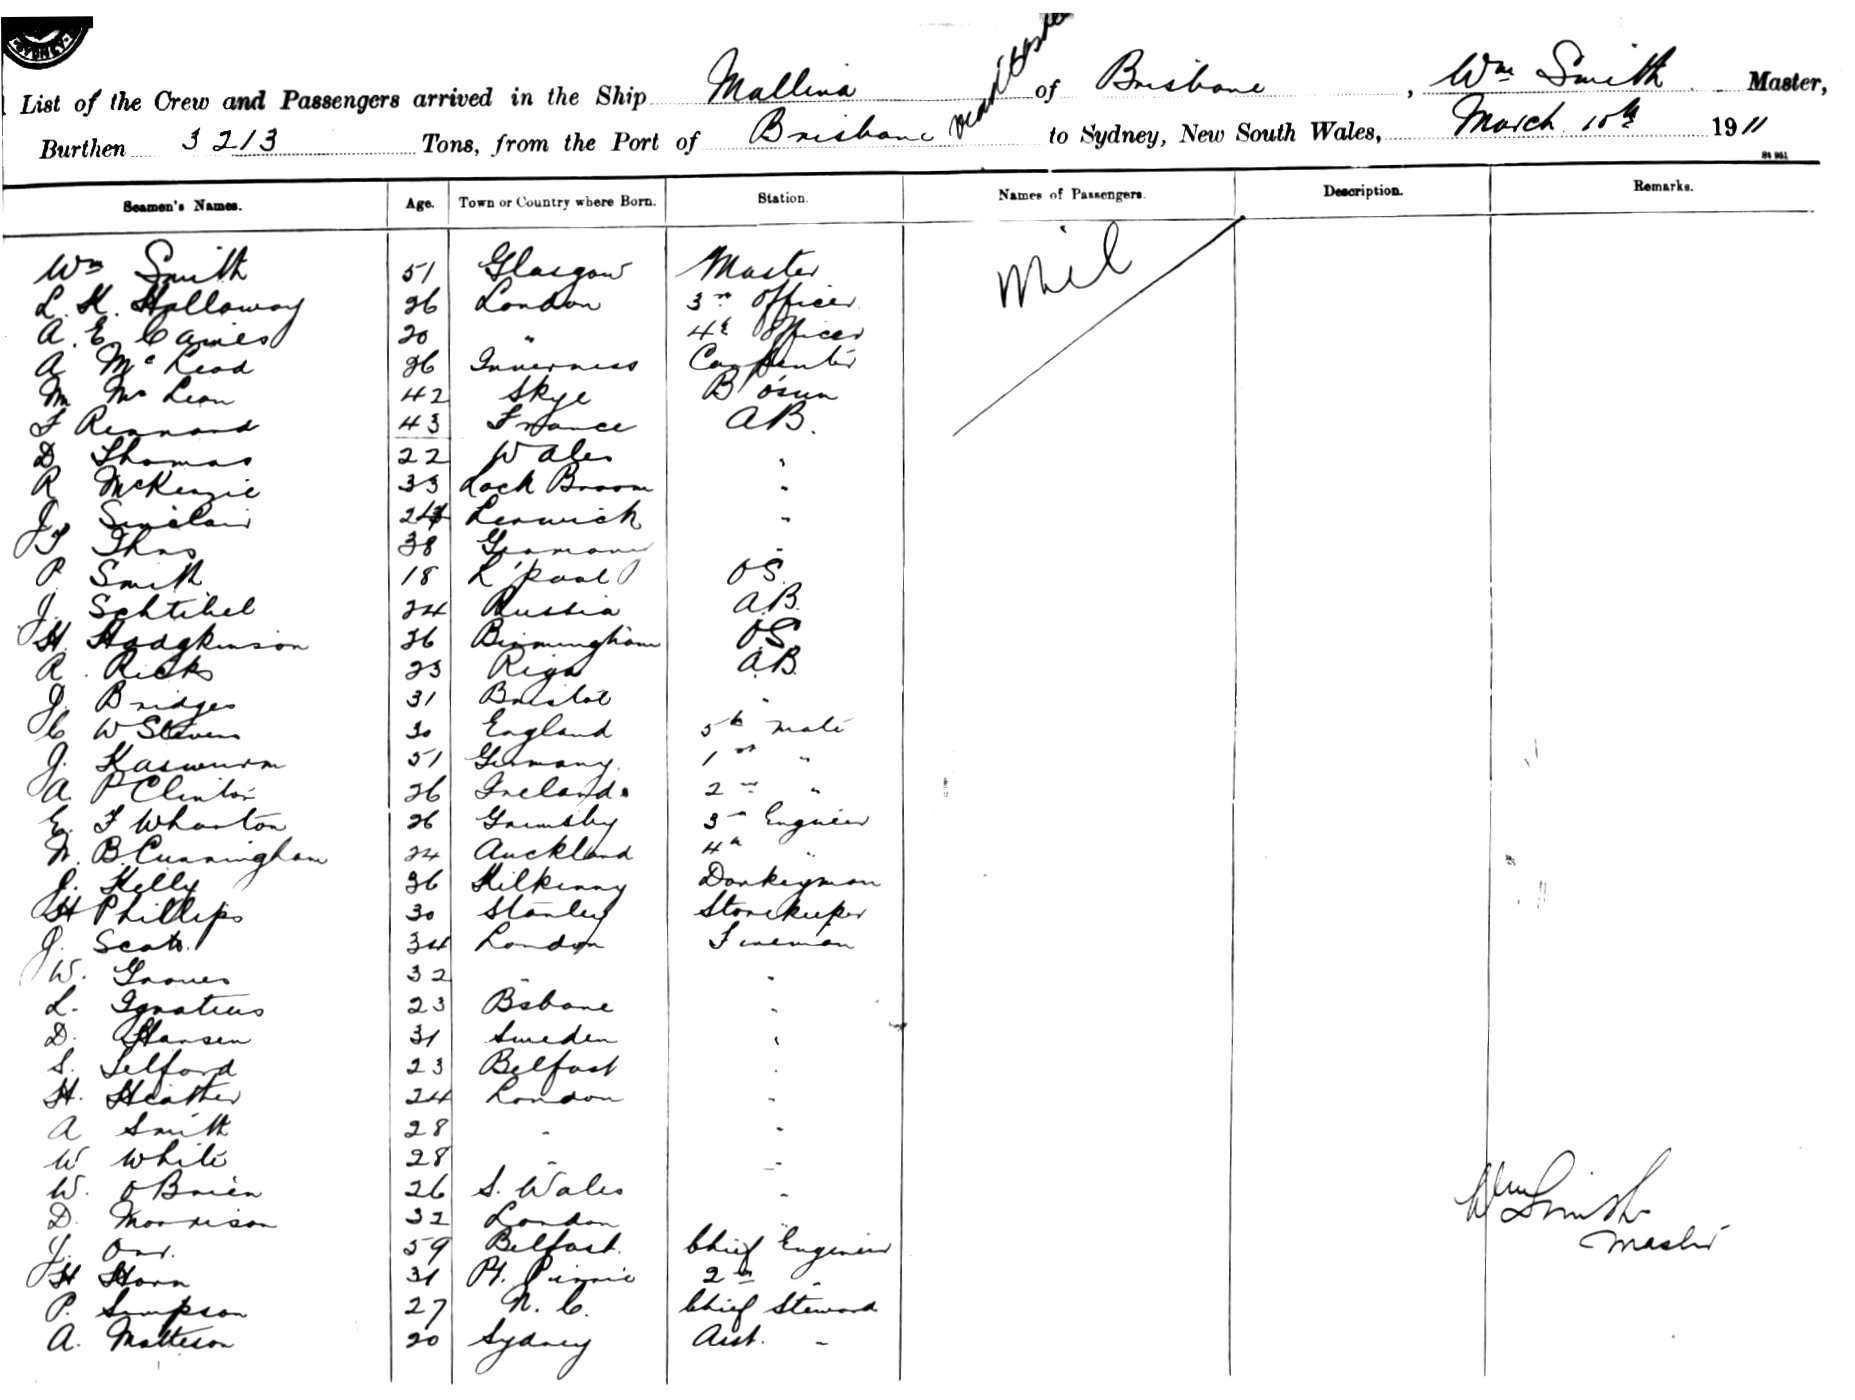 SYDNEY
List of the Crew and Passengers arrived in the Ship Mallina of Brisbane, Wm Smith Master,
Burthen 3213 Tons, from the Port of Brisbane to Sydney, New South Wales, March 10th 1911
Seamen's Names. Age. Town or Country where Born. Station. Names of Passengers. Description. Remarks.
Wm Smith 51 Glasgow Master Nil
L. H. Holloway 26 London 3rd Officer
A. E. Caines 20 " 4th Officer
A McLeod 26 Inverness Carpenter
M McLean 42 Skye B'osun
F Rennard 43 France AB.
D Thomas 22 Wales "
R McKenzie 33 Loch Broom "
J. Sinclair 24 Lerwick "
T Thns 38 Germany "
P. Smith 18 L'pool OS.
J. Schtibel 24 Russia A.B.
H. Hodgkinson 26 Birmingham OS
R. Ricks 23 Riga A.B.
J. Bridges 31 Bristol "
C W Stevens 30 England 5th Mate
J. Kaswurm 51 Germany 1st "
A P Clinton 26 Ireland. 2nd "
E. F Wharton 26 Grimsby 3rd Engineer
N. B. Cunningham 24 Auckland 4th "
J. Kelly 36 Kilkenny Donkeyman
H Phillips 30 Stanley Storekeeper
J. Scott. 34 London Fireman
W. Groves 32 " "
L. Ignatius 23 Bsbane "
D. Hansen 31 Sweden "
S. Telford 23 Belfast "
H. Heather 24 London "
A Smith 28 " "
W White 28 " "
W. O'Brien 26 S. Wales "
D. Morrison 32 London
J. Orr. 59 Belfast. Chief Engineer
H Horn 31 Pt. Pirrie 2nd "
P. Simpson 27 N. C. Chief Steward
A. Matteson 20 Sydney Asst. "
Wm Smith
Master